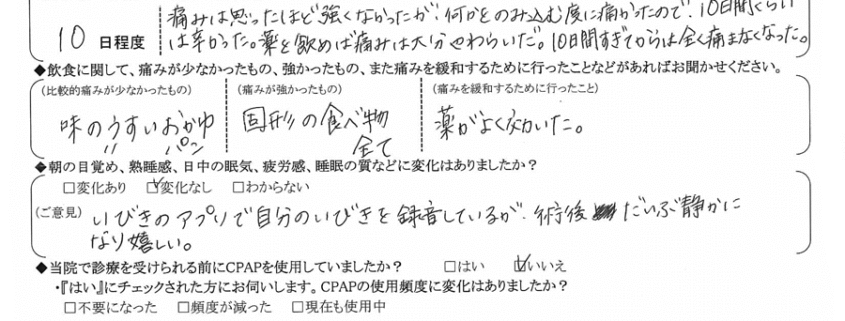 10 日程度
痛みは思ったほど強くなかったが、何かをのみ込む度に痛かったので、10日間くらい
は辛かった。薬を飲めば痛みは大分やわらいだ。10日間すぎてからは全く痛まなくなった。
◆飲食に関して、痛みが少なかったもの、強かったもの、また痛みを緩和するために行ったことなどがあればお聞かせください。
(比較的痛みが少なかったもの)
味のうすいおかゆ
〃 パン
(痛みが強かったもの)
固形の食べ物
全て
(痛みを緩和するために行ったこと)
薬がよく効いた。
◆朝の目覚め、熟睡感、日中の眠気、疲労感、睡眠の質などに変化はありましたか？
□変化あり ☑変化なし □わからない
(ご意見)
いびきのアプリで自分のいびきを録音しているが、術後 だいぶ静かに
なり嬉しい。
◆当院で診療を受けられる前にCPAPを使用していましたか？ □はい ☑いいえ
・『はい』にチェックされた方にお伺いします。CPAPの使用頻度に変化はありましたか？
□不要になった □頻度が減った □現在も使用中